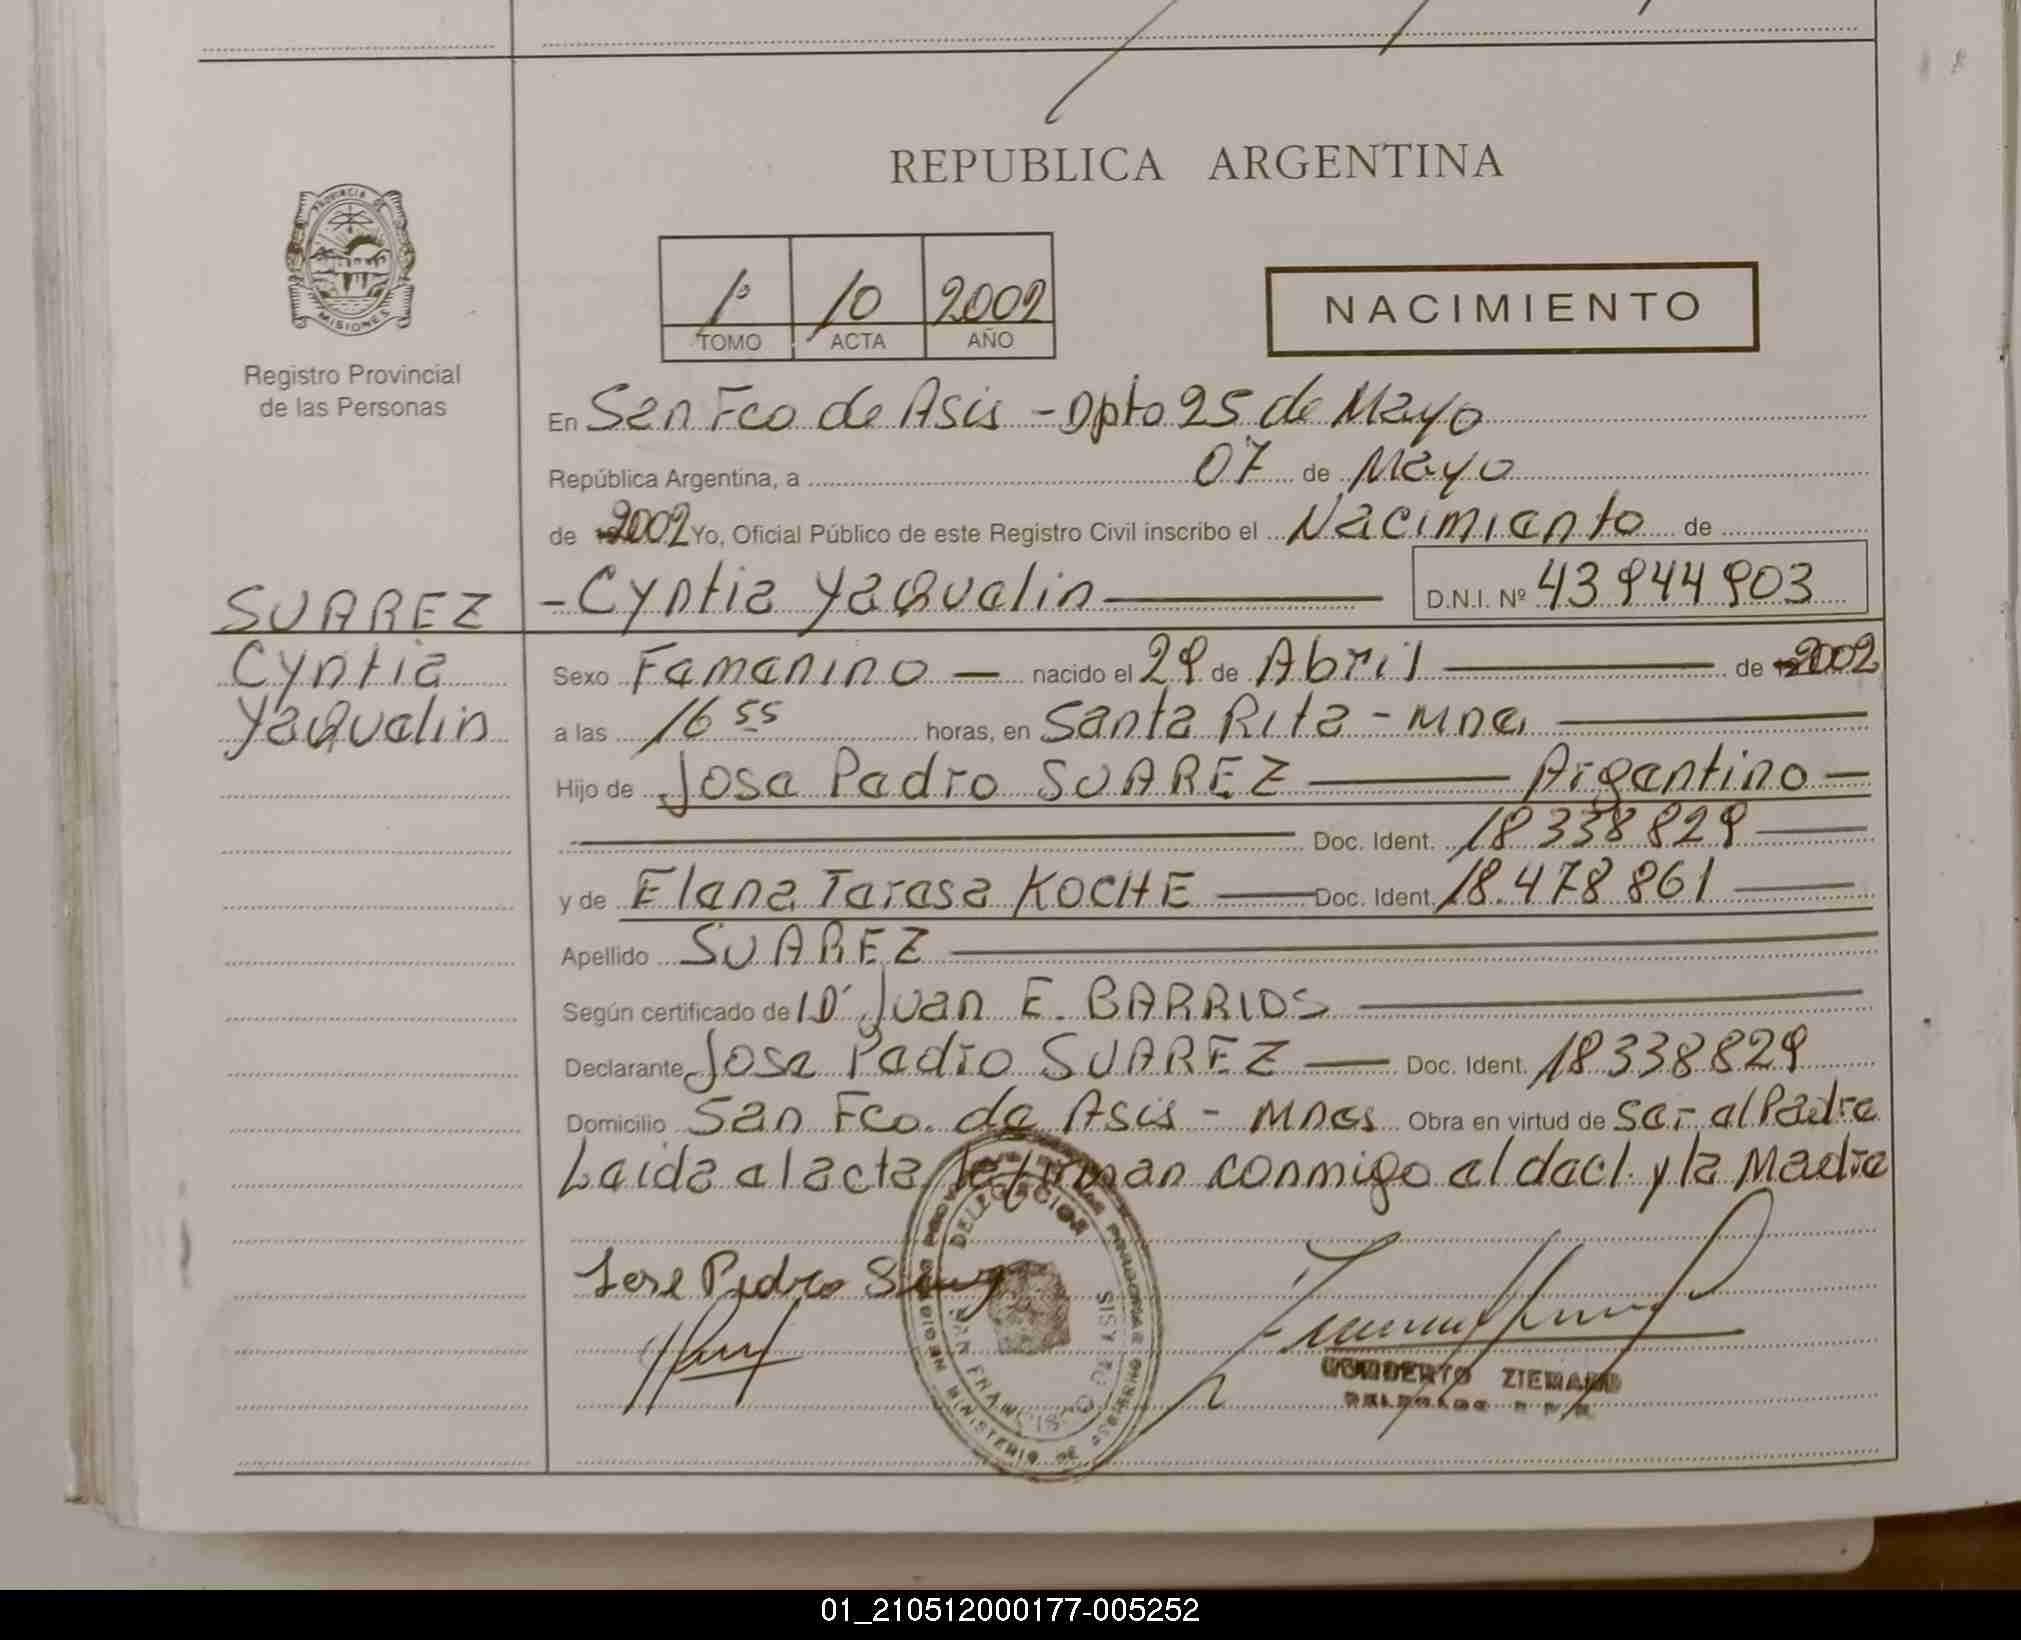 REPUBLICA ARGENTINA
PROVINCIA DE MISIONES
Registro Provincial
de las Personas
1º 10 2002
TOMO ACTA AÑO
NACIMIENTO
En San Fco de Asis - Dpto 25 de Mayo
República Argentina, a 07 de Mayo
de 2002 Yo, Oficial Público de este Registro Civil inscribo el Nacimiento de
- Cyntia Yaquelin D.N.I. Nº 43944903
SUAREZ
Cyntia
Yaquelin
Sexo Femenino nacido el 29 de Abril de 2002
a las 16 55 horas, en Santa Rita - Mnes
Hijo de Jose Pedro SUAREZ Argentino
Doc. Ident. 18338829
y de Elena Teresa KOCHE Doc. Ident. 18.478861
Apellido SUAREZ
Según certificado de Dr Juan E. BARRIOS
Declarante Jose Pedro SUAREZ Doc. Ident. 18338829
Domicilio San Fco. de Asis - Mnes Obra en virtud de ser el Padre
Leida el acta la firman conmigo el decl. y la Madre
Jose Pedro
DELEGACION
SAN FRANCISCO DE ASIS
MINISTERIO DE GOBIERNO
ZIEMANN
01_210512000177-005252